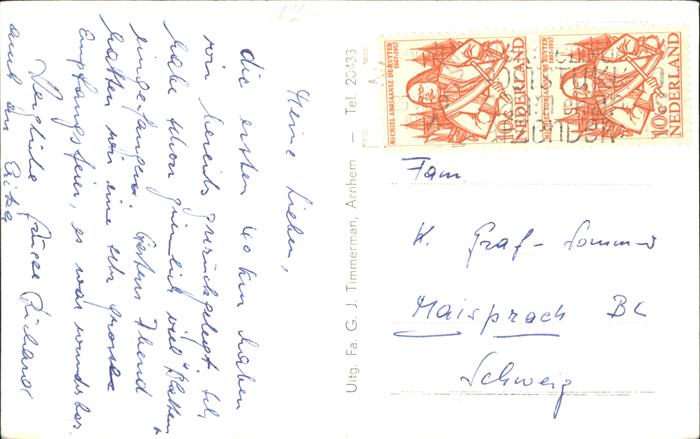 Meine Lieben,
die ersten 40 km haben
wir bereits zurückgelegt. Ich
habe schon ziemlich viel "Blatten"
eingefangen. Gestern Abend
hatten wir eine sehr grosse
Empfangsfeier, es war wunderbar.
Herzliche Grüsse Richard
auch an
Uitg. Fa. G. J. Timmerman, Arnhem — Tel. 20433
MICHIEL ADRIAANSZ. DE RUYTER
1607-1957
10c
NEDERLAND
MICHIEL ADRIAANSZ. DE RUYTER
1607-1957
10c
NEDERLAND
Fam.
K. Graf-Sommer
Maisprach BL
Schweiz